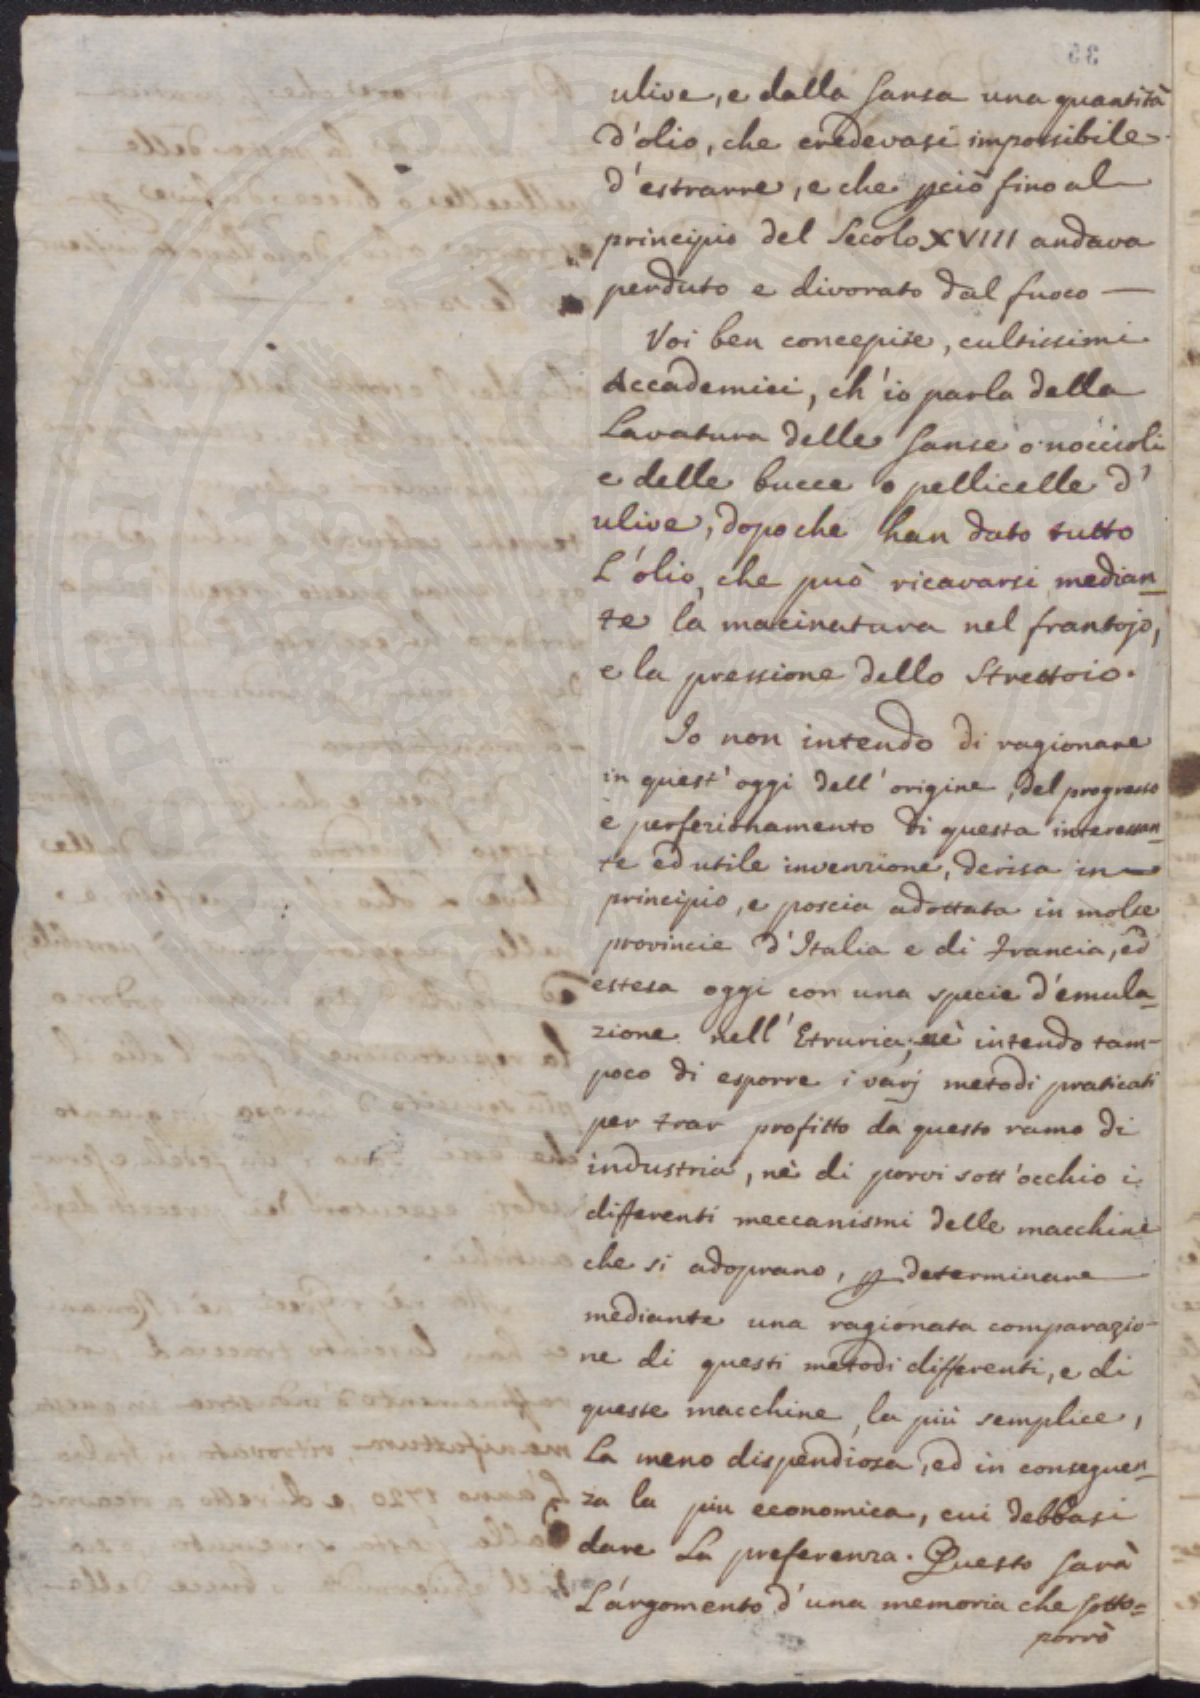 ulive, e dalla sansa una quantità
d'olio, che credevasi impossibile
d'estrarre, e che pciò fino al
principio del Secolo XVIII andava
perduto e divorato dal fuoco —
Voi ben concepite, cultissimi
Accademici, ch'io parlo della
Lavatura delle sanse o noccioli
e delle bucce o pellicelle d'
ulive, dopo che han dato tutto
L'olio, che può ricavarsi median=
te la macinatura nel frantojo,
e la pressione dello Strettoio.
Io non intendo di ragionare
in quest'oggi dell'origine, del progresso
e perfezionamento di questa interessan=
te ed utile invenzione, derisa in
principio, e poscia adottata in molte
provincie d'Italia e di Francia, ed
estesa oggi con una specie d'emula=
zione nell'Etruria; nè intendo tam-
poco di esporre i varj metodi praticati
per trar profitto da questo ramo di
industria, nè di porvi sott'occhio i
differenti meccanismi delle macchine
che si adoprano, p determinare
mediante una ragionata comparazio-
ne di questi metodi differenti, e di
queste macchine, la più semplice,
La meno dispendiosa, ed in conseguen=
za la piu economica, cui debbasi
dare La preferenza. Questo sarà
L'argomento d'una memoria che sotto=
porrò